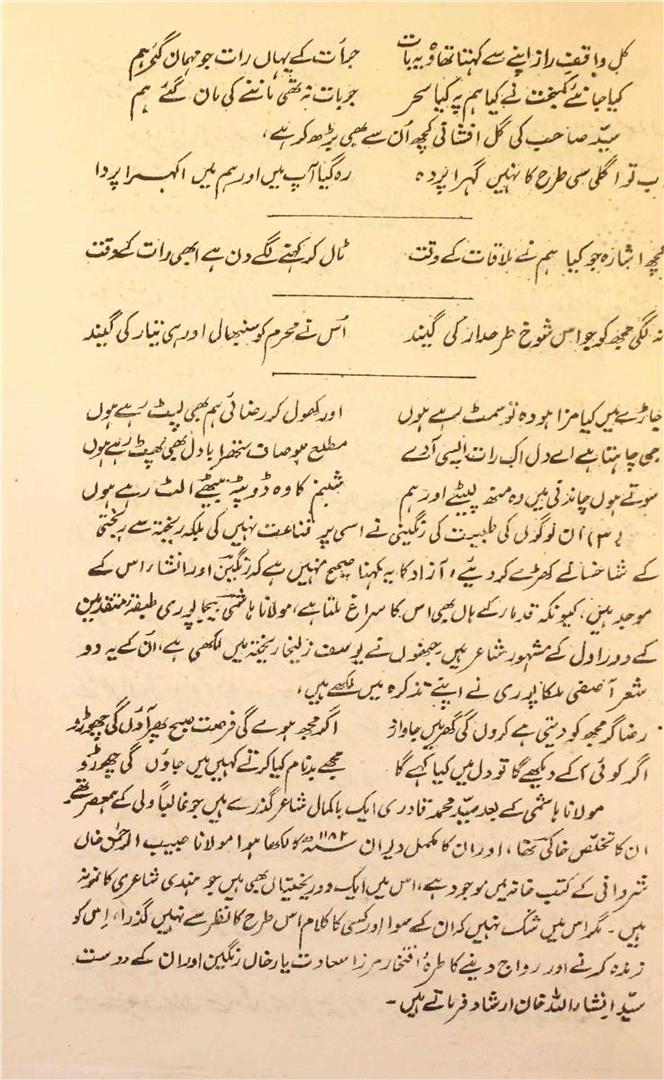 کل واقفِ راز اپنے سے کہتا تھا وہ یہ بات جرأت کے یہاں رات جو مہمان گئے ہم
کیا جانئے کمبخت نے کیا ہم پہ کیا سحر جو بات نہ تھی ماننے کی مان گئے ہم
سیّد صاحب کی گل افشانی کچھ اُن سے بھی بڑھ کر ہے،
ب تو اگلی سی طرح کا نہیں گہرا پردہ رہ گیا آپ میں اور ہم میں اکہرا پردا
کچھ اشارہ جو کیا ہم نے ملاقات کے وقت ٹال کر کہنے لگے دن ہے ابھی رات کے وقت
نہ لگی مجھ کو جو اس شوخ طرحدار کی گیند اُس نے محرم کو سنبھال اور ہی تیار کی گیند
جاڑے میں کیا مزا ہو وہ تو سمٹ رہے ہوں اور کھول کر رضائی ہم بھی لپٹ رہے ہوں
جی چاہتا ہے اے دل اک رات ایسی آوے مطلع ہو صاف ستھرا بادل بھی پھٹ رہے ہوں
سوتے ہوں چاندنی میں وہ منھ لپیٹے اور ہم شبنم کا وہ دوپٹہ بیٹھے الٹ رہے ہوں
(۳) ان لوگوں کی طبیعت کی رنگینی نے اسی پر قناعت نہیں کی بلکہ ریختہ سے ریختی
کے شاخسانے کھڑے کر دیئے، آزاد کا یہ کہنا صحیح نہیں ہے کہ رنگین اور انشا، اس کے
موجد ہیں، کیونکہ قدما، کے ہاں بھی اس کا سراغ ملتا ہے، مولانا ہاشمی بیجا پوری طبقۂ متقدمین
کے دور اول کے مشہور شاعر ہیں جنھوں نے یوسف زلیخا ریختہ میں لکھی ہے، ان کے یہ دو
شعر آصفی ملکاپوری نے اپنے تذکرہ میں لکھے ہیں،
رضا گر مجھ کو دیتی ہے کروں گی گھر میں جا وواز اگر مجھ ہووے گی فرصت صبح پھر آؤں گی چھوڑو
اگر کوئی آکے دیکھے گا تو دل میں کیا کہے گا مجھے بدنام کیا کرتے کہیں میں جاؤں گی چھوڑو
مولانا ہاشمی کے بعد سیّد محمد قادری ایک باکمال شاعر گذرے ہیں جو غالباً ولی کے ہمعصر تھے
ان کا تخلص خاکی تھا، اور ان کا مکمل دیوان ۱۱۸۲ھ کا لکھا ہوا مولانا حبیب الرحمٰن خاں
شروانی کے کتب خانہ میں موجود ہے، اس میں ایک دو ریختیاں بھی ہیں جو ہندی شاعری کا نمونہ
ہیں۔ مگر اس میں شک نہیں کہ ان کے سوا اور کسی کا کلام اس طرح کا نظر سے نہیں گذرا، اس کو
زندہ کرنے اور رواج دینے کا طرۂ افتخار مرزا سعادت یار خاں رنگین اور ان کے دوست
سیّد انشاء اللہ خان ارشاد فرماتے ہیں۔